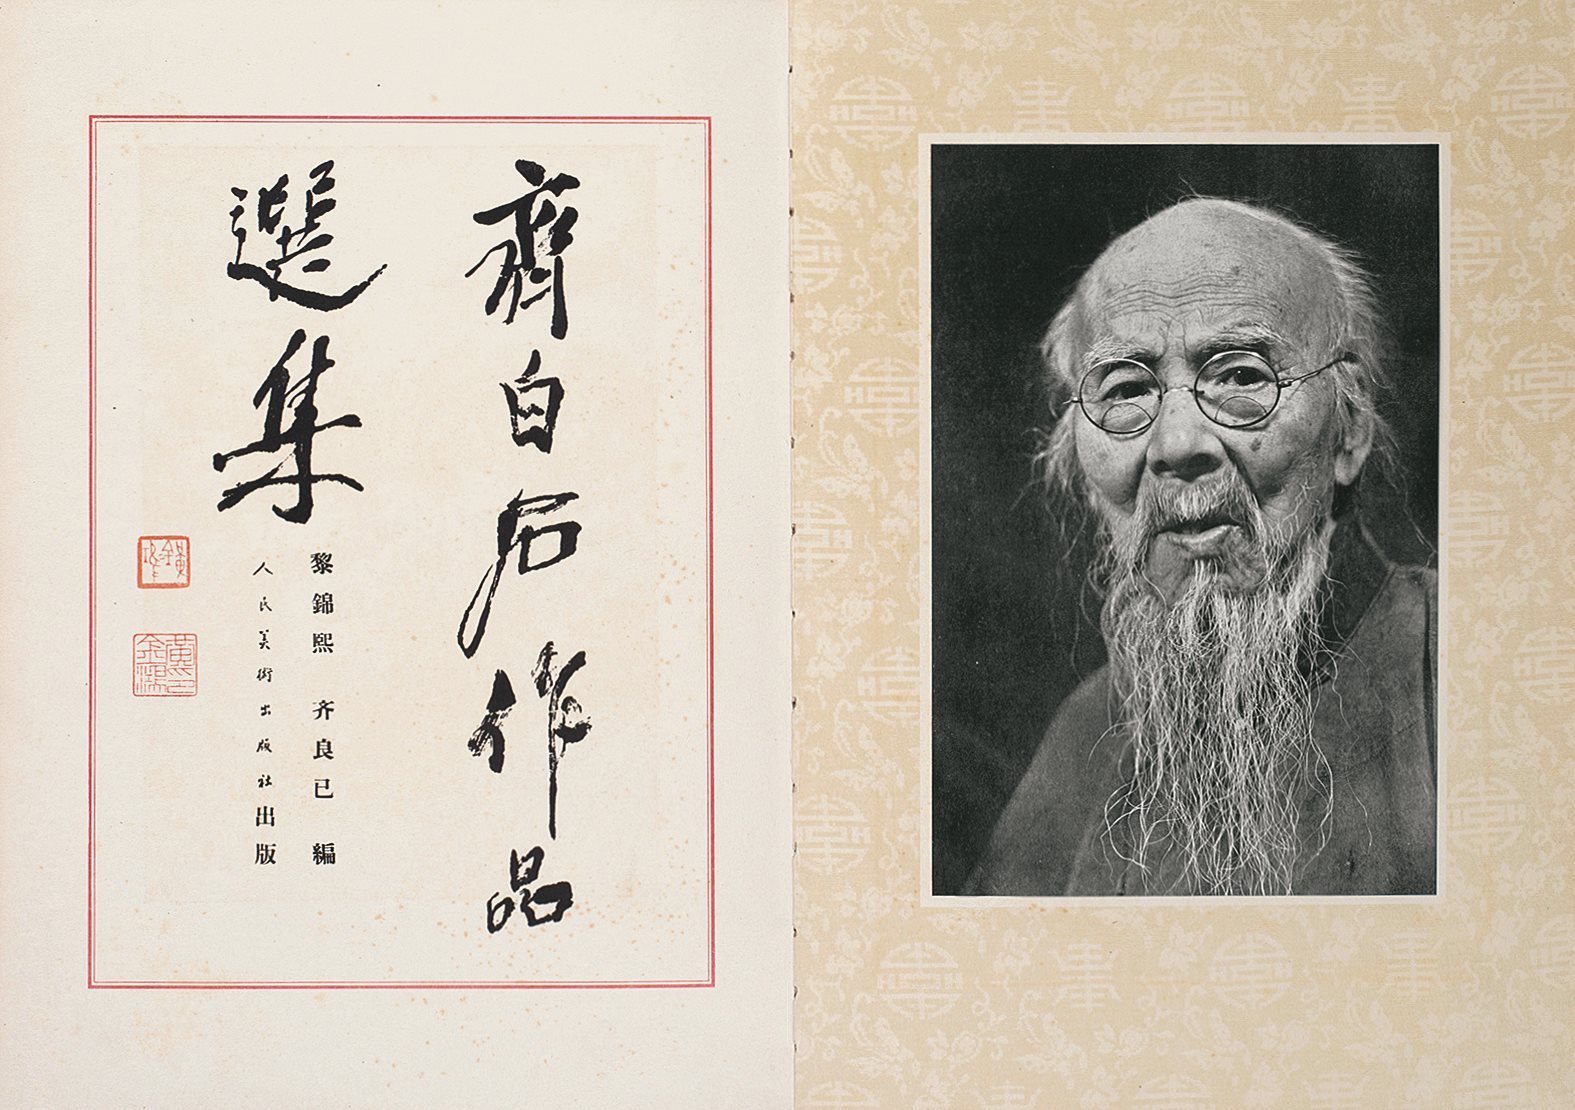 齊白石作品
選集
黎錦熙 齐良已 編
人民美術出版社出版